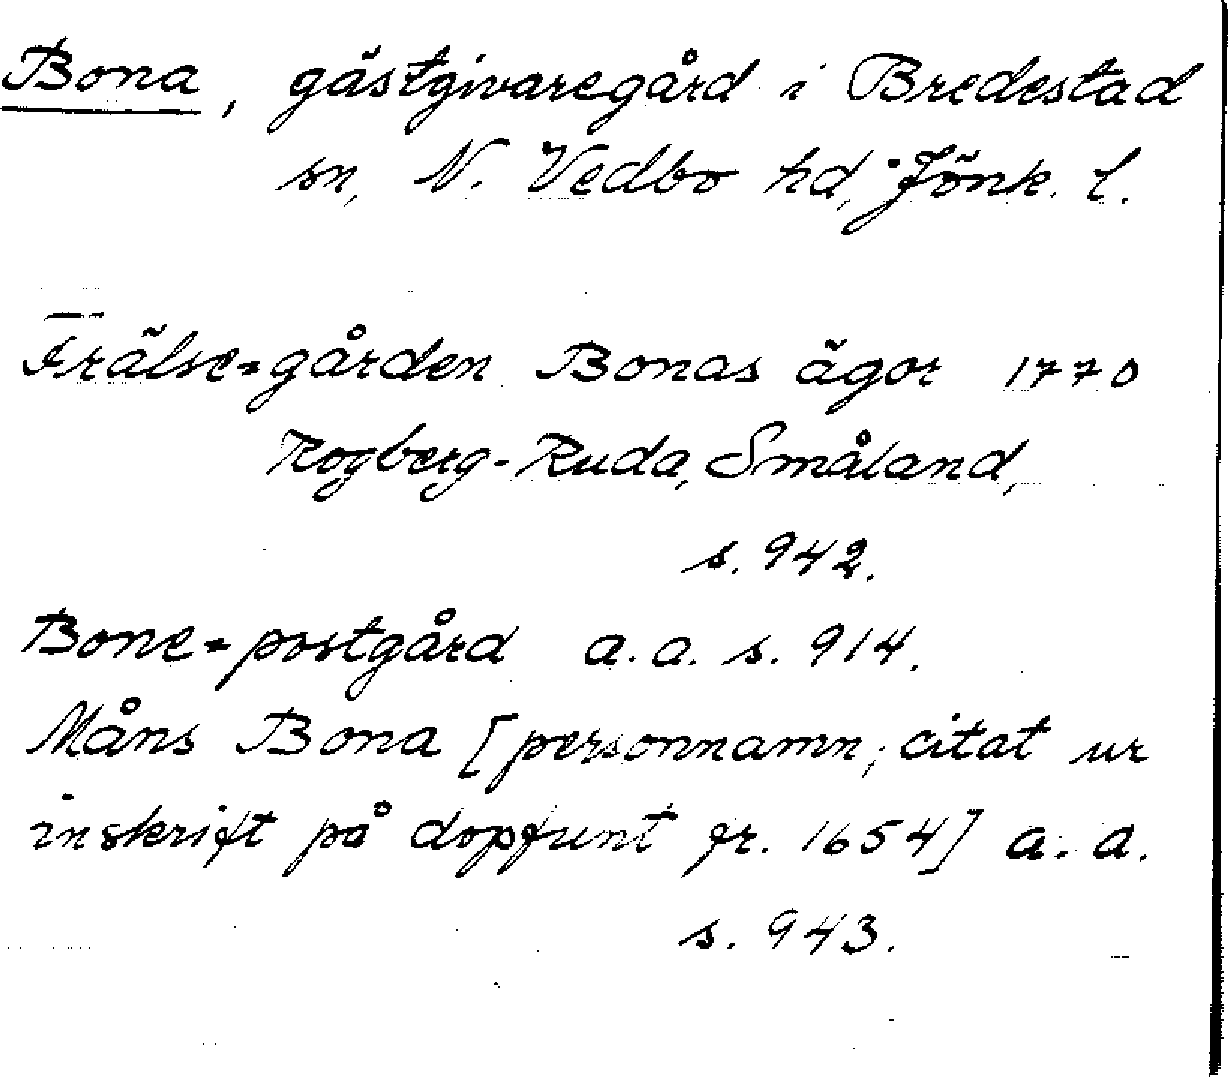 Bona, gästgivaregård i Bredestad
sn, N. Vedbo hd, Jönk. l.
Frälse-gården Bonas ägor 1770
Rogberg-Ruda, Småland,
s. 942.
Bone-postgård a.a. s. 914.
Måns Bona [personnamn; citat ur
inskrift på dopfunt fr. 1654] a. a.
s. 943.